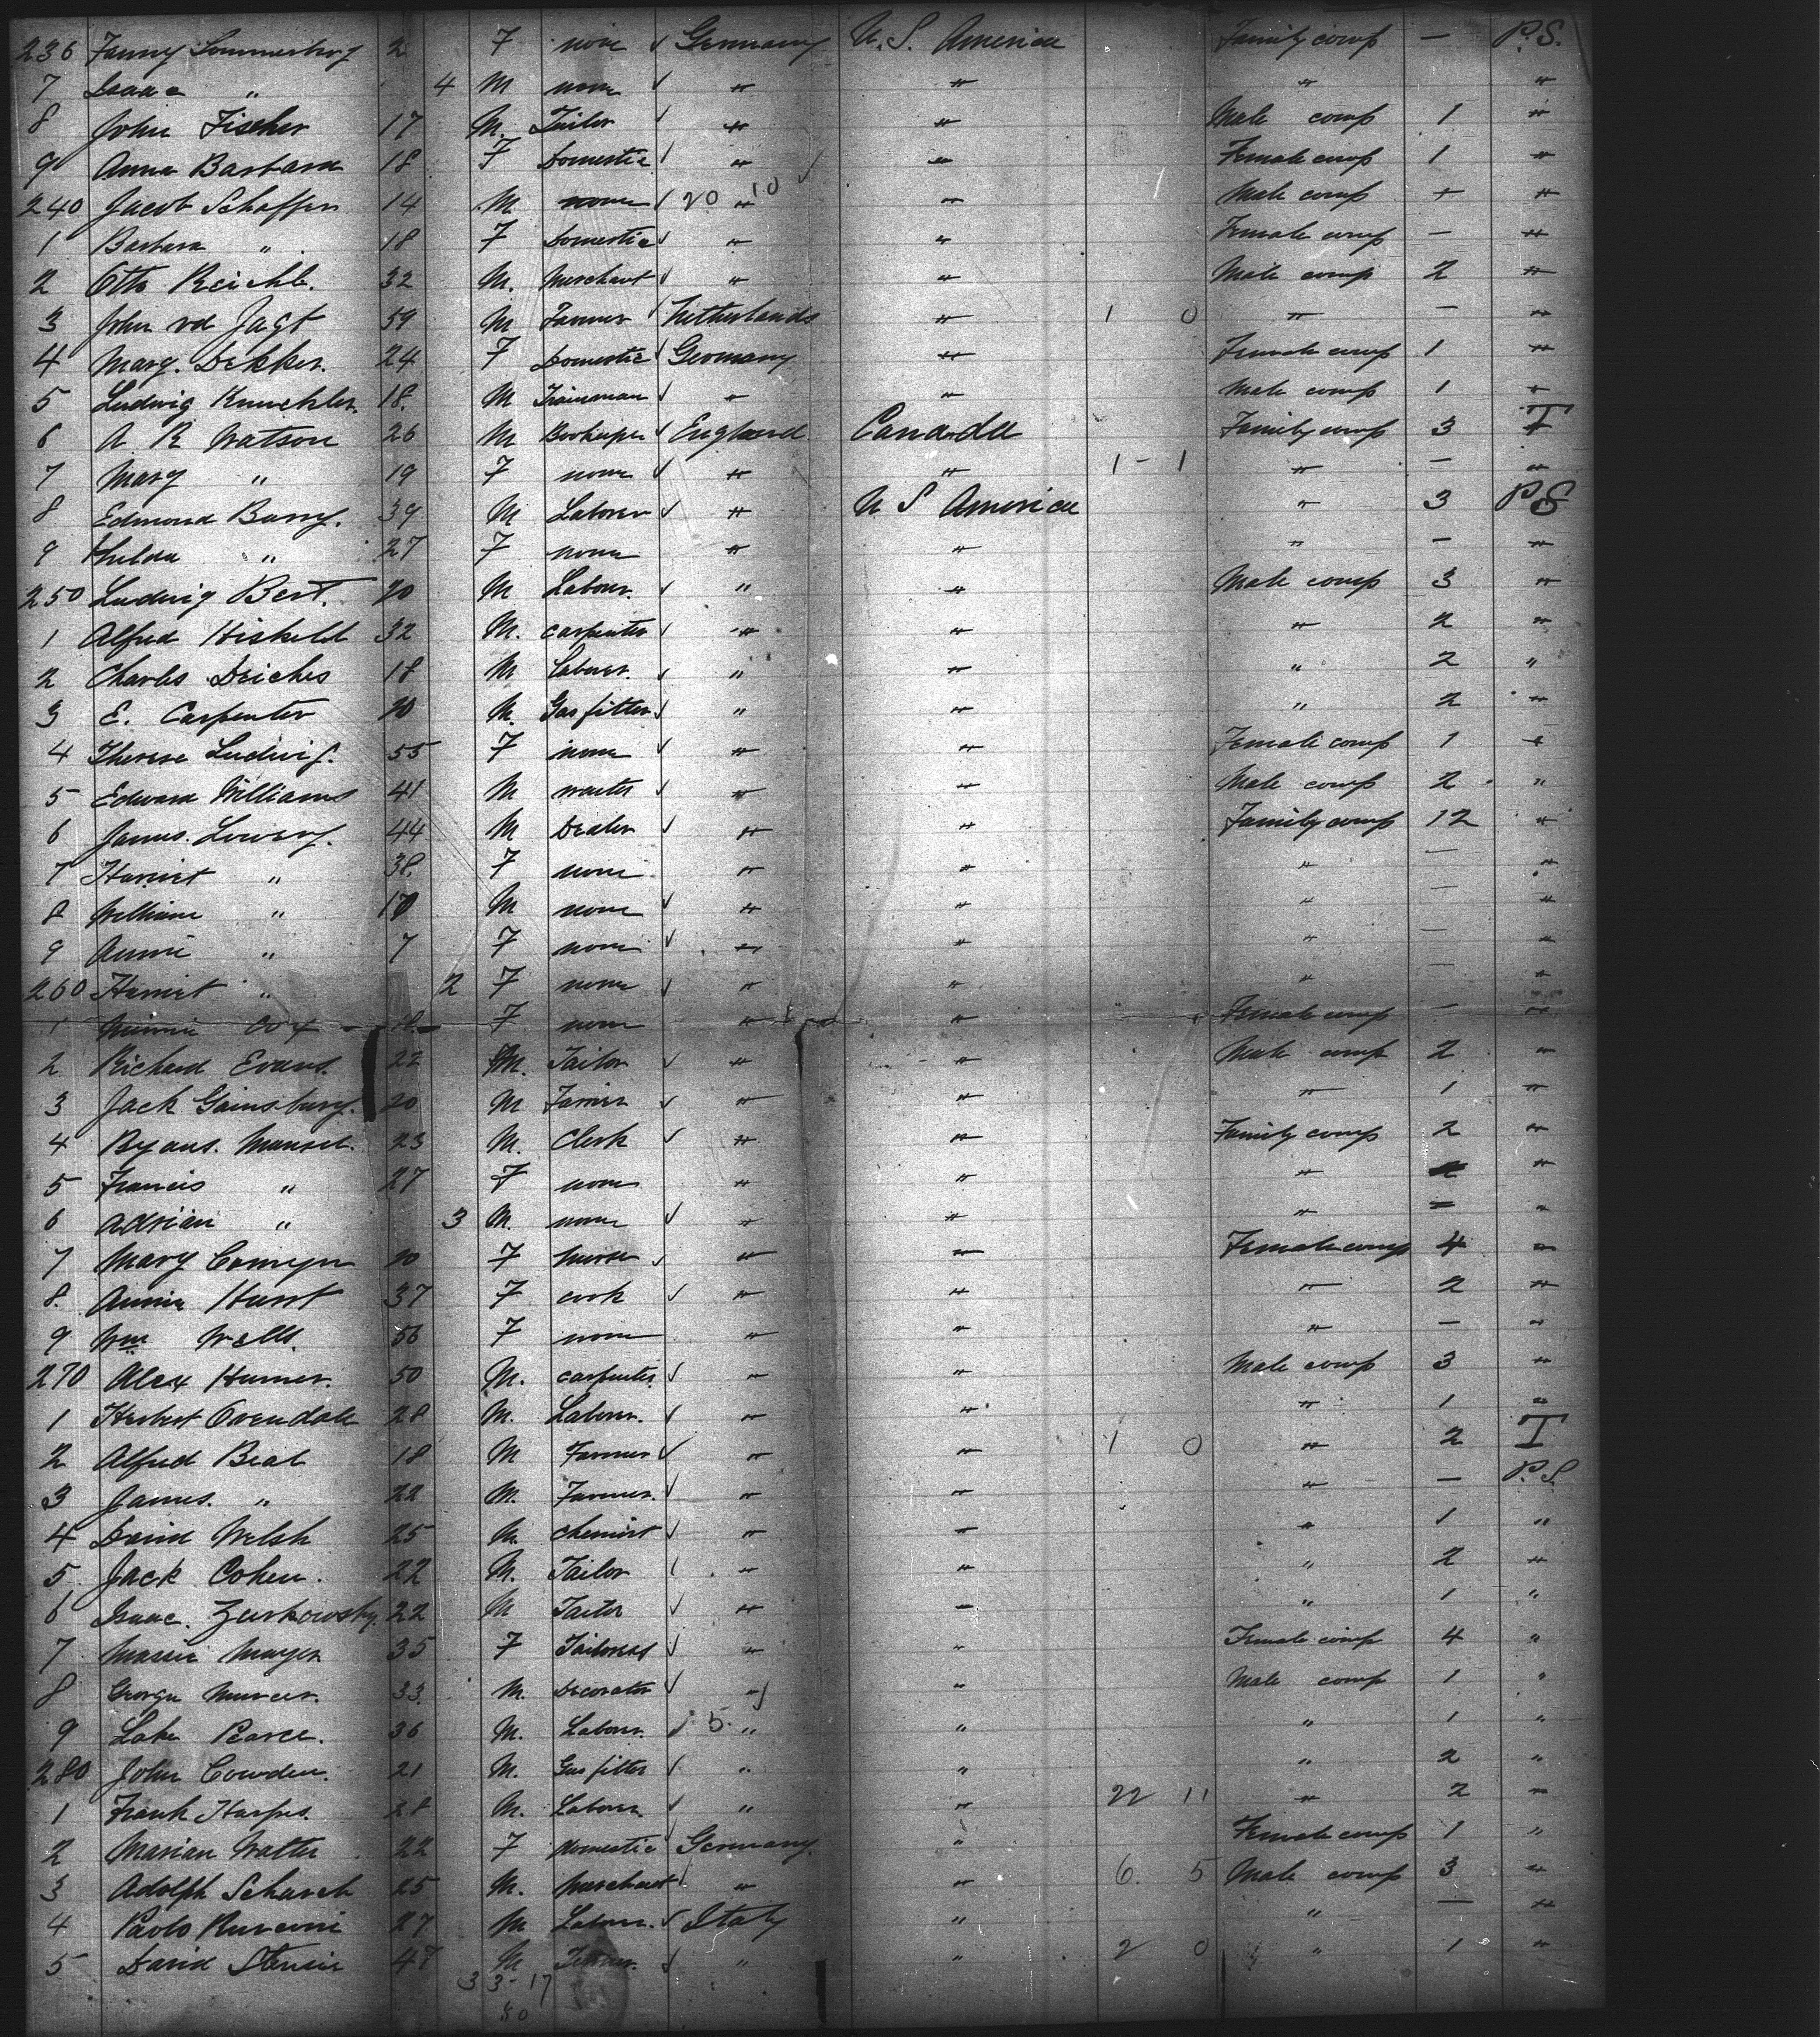 236 Fanny Sommerberg 2 F none ✓ Germany U.S. America Family comp — P.S.
7 Isaac " 4 M none ✓ " " " "
8 John Fischer 17 M. Tailor ✓ " " Male comp 1 "
9 Anna Barbara 18 F Domestic ✓ " " Female comp 1 "
240 Jacob Schaffer 14 M none ✓ 20 " 10 " Male comp + "
1 Barbara " 18 F Domestic ✓ " " Female comp — "
2 Otto Reichle. 32 M. Merchant ✓ " " Male comp 2 "
3 John vd Jagt 59 M Farmer ✓ Netherlands " 1 0 " — "
4 Marg. Dekker. 24 F Domestic ✓ Germany " Female comp 1 "
5 Ludwig Knuchler. 18. M Trainman ✓ " " Male comp 1 "
6 A R Watson 26 M Bookeeper ✓ England Canada Family comp 3 T
7 Mary " 19 F none ✓ " " 1 - 1 " — "
8 Edmond Barry. 39 M Laborer ✓ " U S America " 3 P.S
9 Hulda " 27 F none " " " — "
250 Ludwig Bert. 20 M Labour. ✓ " " Male comp 3 "
1 Alfred 32 M. carpenter ✓ " " " 2 "
2 Charles Deiches 18 M Laborer. ✓ " " " 2 "
3 E. Carpenter 20 M. Gasfitter ✓ " " " 2 "
4 Therese Ludwig. 55 F none ✓ " " Female comp 1 "
5 Edward Williams 41 M waiter ✓ " " Male comp 2 "
6 James. Lowery. 44 M Dealer ✓ " " Family comp 12 "
7 Harriet " 38. F none " " " — "
8 William " 10 M none ✓ " " " — "
9 Annie " 7 F none ✓ " " " — "
260 Harriet " 2 F none ✓ " " " — "
1 Minnie Cox 18 F none " " Female comp — "
2 Richard Evans. 22 M. Tailor ✓ " " Male comp 2 "
3 Jack Gainsbury. 20 M ✓ " " " 1 "
4 Mansel. 23 M. Clerk ✓ " " Family comp 2 "
5 Francis " 27 F none " " " "
6 Adrian " 3 M. none ✓ " " " = "
7 Mary Comyn 20 F nurse ✓ " " Female comp 4 "
8. Annie Hurst 37 F cook ✓ " " " 2 "
9 Wm Wells. 56 F none " " " — "
270 Alex Humer. 50 M. carpenter ✓ " " Male comp 3 "
1 Herbert Ovendale 28 M. Laborer. ✓ " " " 1 "
2 Alfred Beal 18 M Farmer ✓ " " 1 0 " 2 T
3 James. " 22 M. Farmer. ✓ " " " — P.S.
4 David Welsh 25 M. chemist ✓ " " " 1 "
5 Jack Cohen. 22 M. Tailor " " " 2 "
6 Isaac. Zurkowsky. 22 M Tailor ✓ " " " 1 "
7 Massie Mayer 35 F Tailoress ✓ " " Female comp 4 "
8 George Mercer. 33. M. Decorator ✓ " " Male comp 1 "
9 Luke Pearce. 36 M. Labour. ✓ 5. " " " 1 "
280 John Cowden. 21 M. Gasfitter ✓ " " " 2 "
1 Frank Harpes. 28 M. Laborer. ✓ " " 22 11 " 2 "
2 Marian Walter 22 F domestic ✓ Germany. " Female comp 1 "
3 Adolph Schurch 25 M. merchant ✓ " " 6. 5 Male comp 3 "
4 Paolo 27 M Laborer. ✓ Italy " " — "
5 David 47 M ✓ " " 2 0 " 1 "
3 3 - 17
50